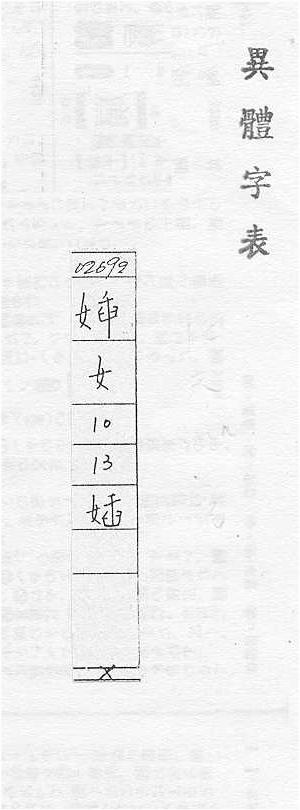 異體字表
02692
女
10
13
X